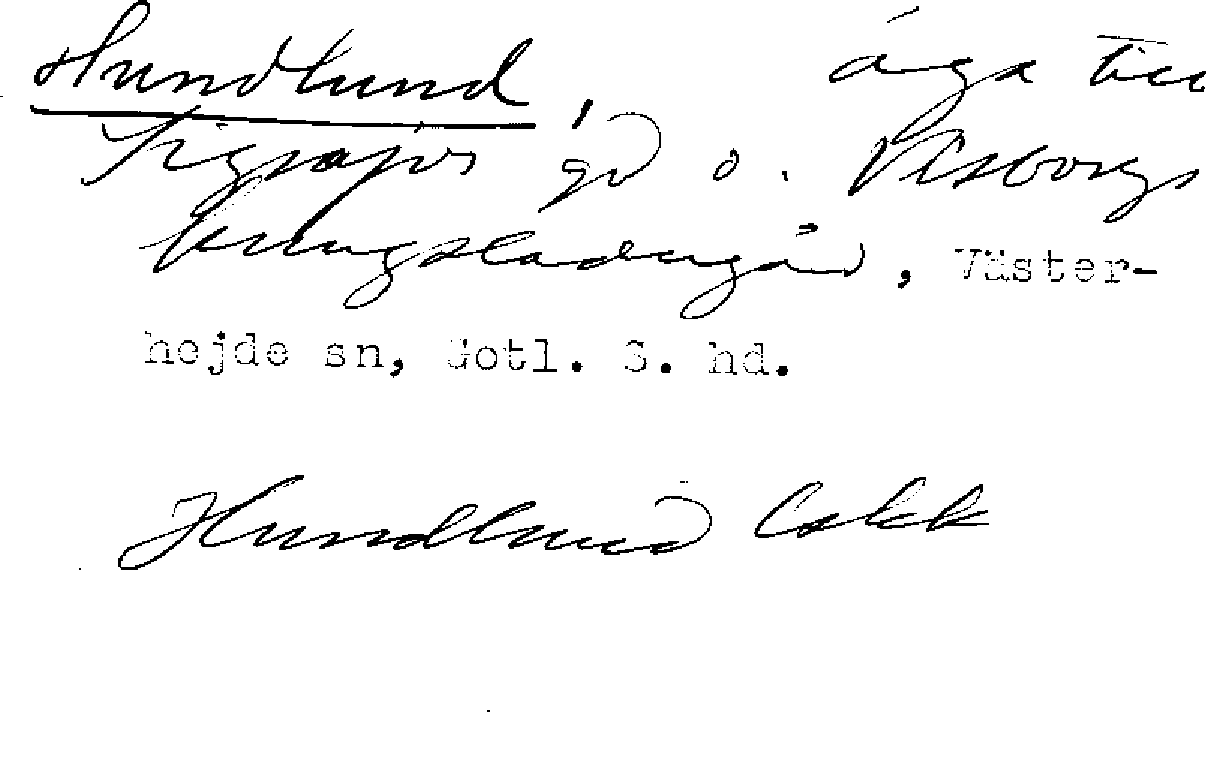 Hundlund, äga till
Sigsajvs gd o. Visborgs
kungsladugård, Väster-
hejde sn, Gotl. S. hd.
Hundlund Cskk